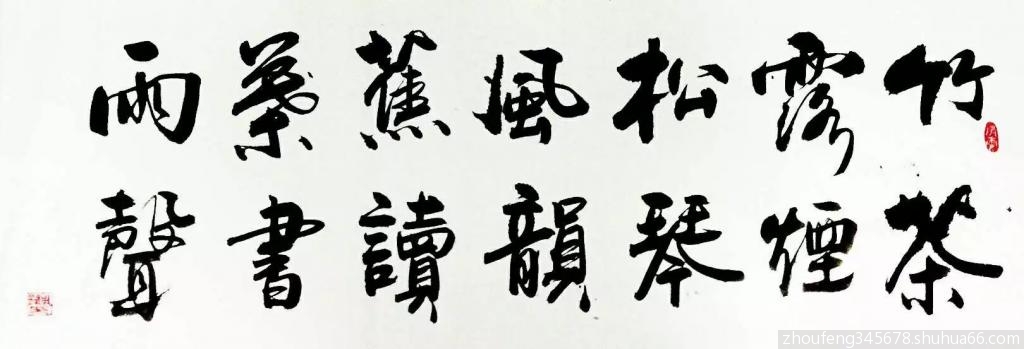 竹露松風蕉葉雨
茶煙琴韻讀書聲
zhoufeng345678.shuhua66.com